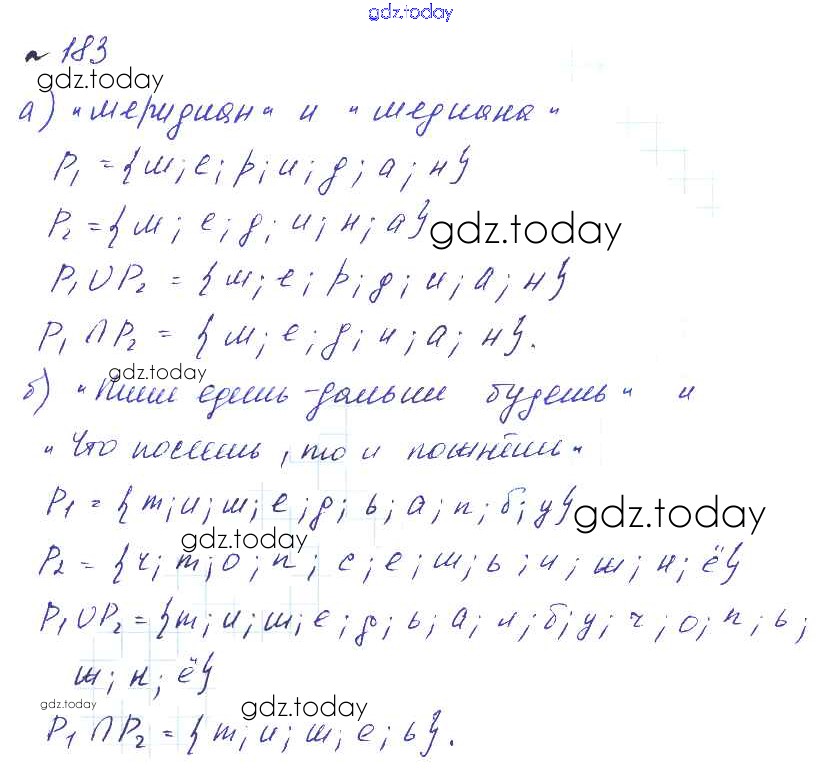 gdz.today
№ 183
gdz.today
а) "меридиан" и "медиана"
P₁ = {м; е; р; и; д; а; н}
P₂ = {м; е; д; и; н; а} gdz.today
P₁ ∪ P₂ = {м; е; р; д; и; а; н}
P₁ ∩ P₂ = {м; е; д; и; а; н}.
gdz.today
б) "Тише едешь - дальше будешь" и
"Что посеешь, то и пожнёшь"
P₁ = {т; и; ш; е; д; ь; а; л; б; у} gdz.today
gdz.today
P₂ = {ч; т; о; п; с; е; ш; ь; и; ж; н; ё}
P₁ ∪ P₂ = {т; и; ш; е; д; ь; а; л; б; у; ч; о; п; ь;
ж; н; ё}
gdz.today gdz.today
P₁ ∩ P₂ = {т; и; ш; е; ь}.